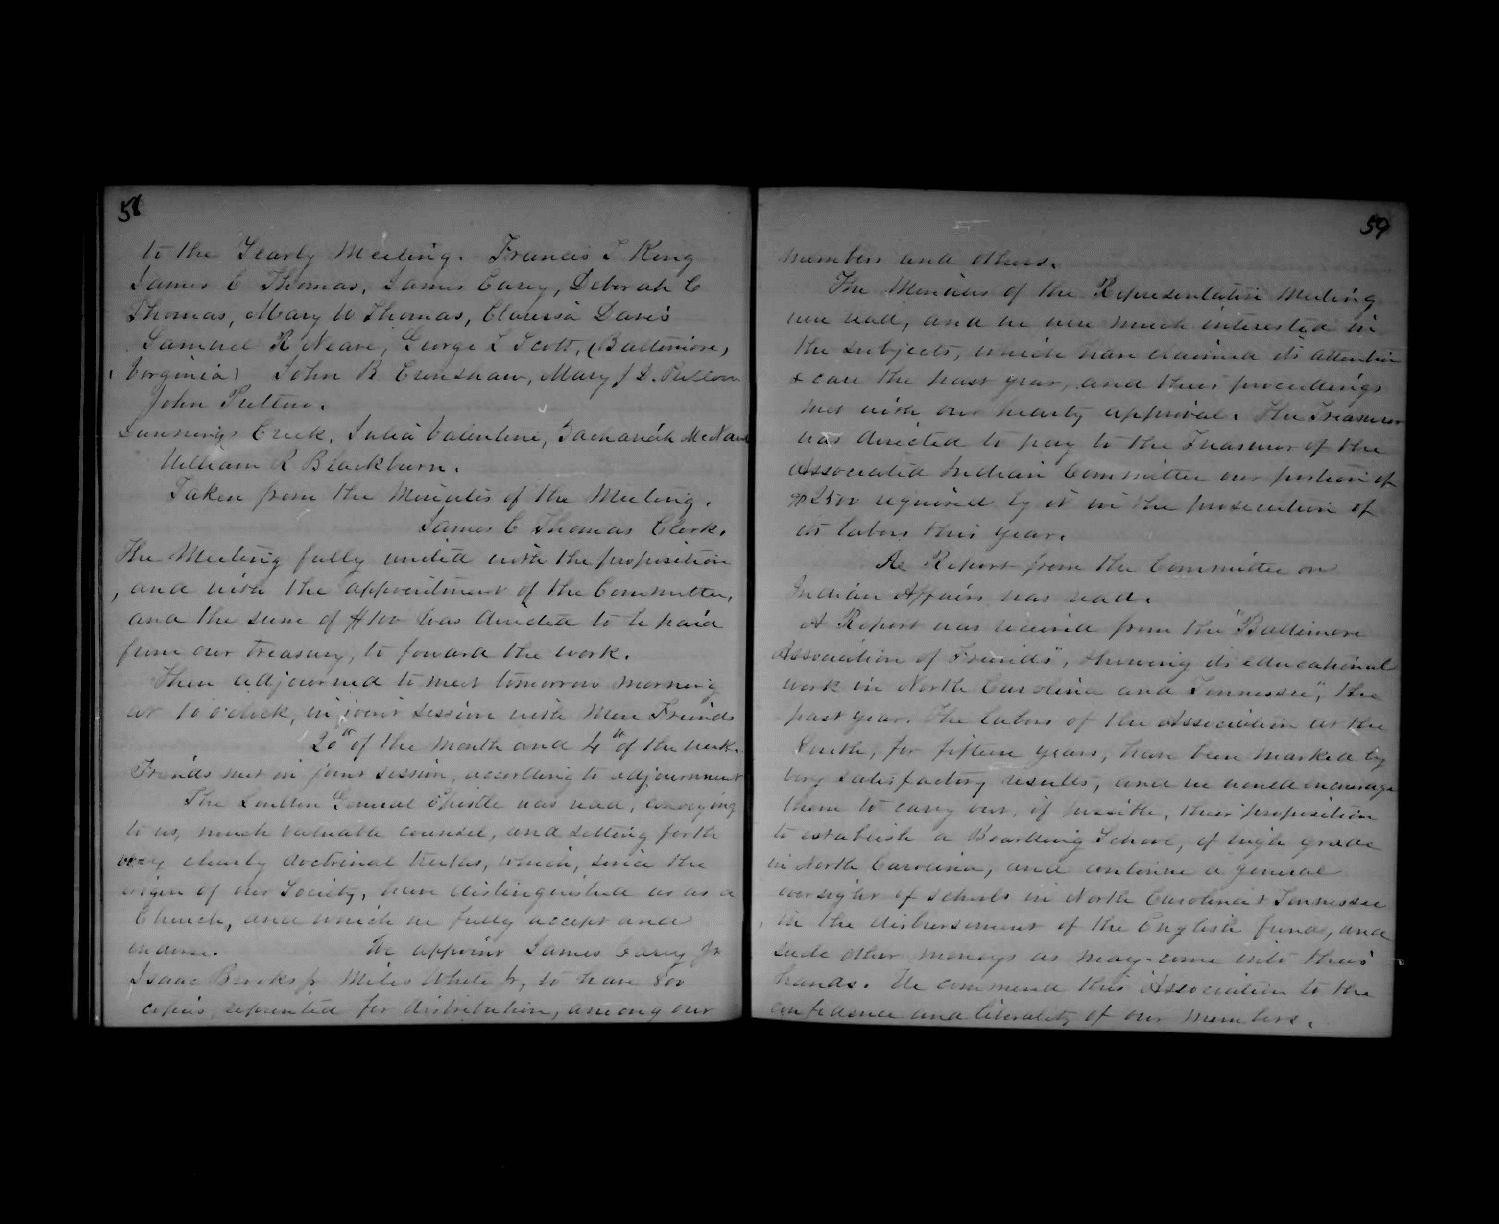 58
to the Yearly Meeting. Francis T King
James C Thomas, James Carey, Deborah C
Thomas, Mary W Thomas, Clarissa Davis
Samuel R Neave, George L Scott, (Baltimore,
(Virginia) John B Crenshaw, Mary J D. Pretlow
John Pretlow.
Dunnings Creek, Julia Valentine, Zachariah McNaul
William R Blackburn.
Taken from the Minutes of the Meeting.
James C Thomas Clerk.
The Meeting fully united with the proposition
, and with the appointment of the Committee,
and the sum of $100 was directed to be paid
from our treasury, to foward the work.
Then adjourned to meet tomorrow morning
at 10 o'clock, in joint session with Men Friends
20th of the month and 4th of the week.
Friends met in joint session, according to adjournment
The London General Epistle was read, conveying
to us, much valuable counsel, and setting forth
very clearly doctrinal truths, which, since the
origin of our Society, have distinguished us as a
Church, and which we fully accept and
endorse. We appoint James Carey Jr
Isaac Brooks Jr Miles White Jr, to have 800
copies, reprinted for distribution, among our
59
members and others.
The Minutes of the Representative Meeting
were read, and we were much interested in
the subjects, which have claimed its attention
& care the past year, and their proceedings
met with our hearty approval. The Treasurer
was directed to pay to the Treasurer of the
Associated Indian Committee our portion of
$2500 required by it in the prosecution of
its labors this year.
A Report from the Committee on
Indian Affairs was read.
A Report was received from the "Baltimore
Association of Friends", showing its educational
work in North Carolina and Tennessee", the
past year. The labors of the Association at the
South, for fifteen years, have been marked by
very satisfactory results, and we would encourage
them to carry out, if possible, their proposition
to establish a Boarding School, of high grade
in North Carolina, and continue a general
oversight of schools in North Carolina & Tennessee
in the disbursement of the English funds, and
such other moneys as may come into their
hands. We commend this Association to the
confidence and liberality of our members.